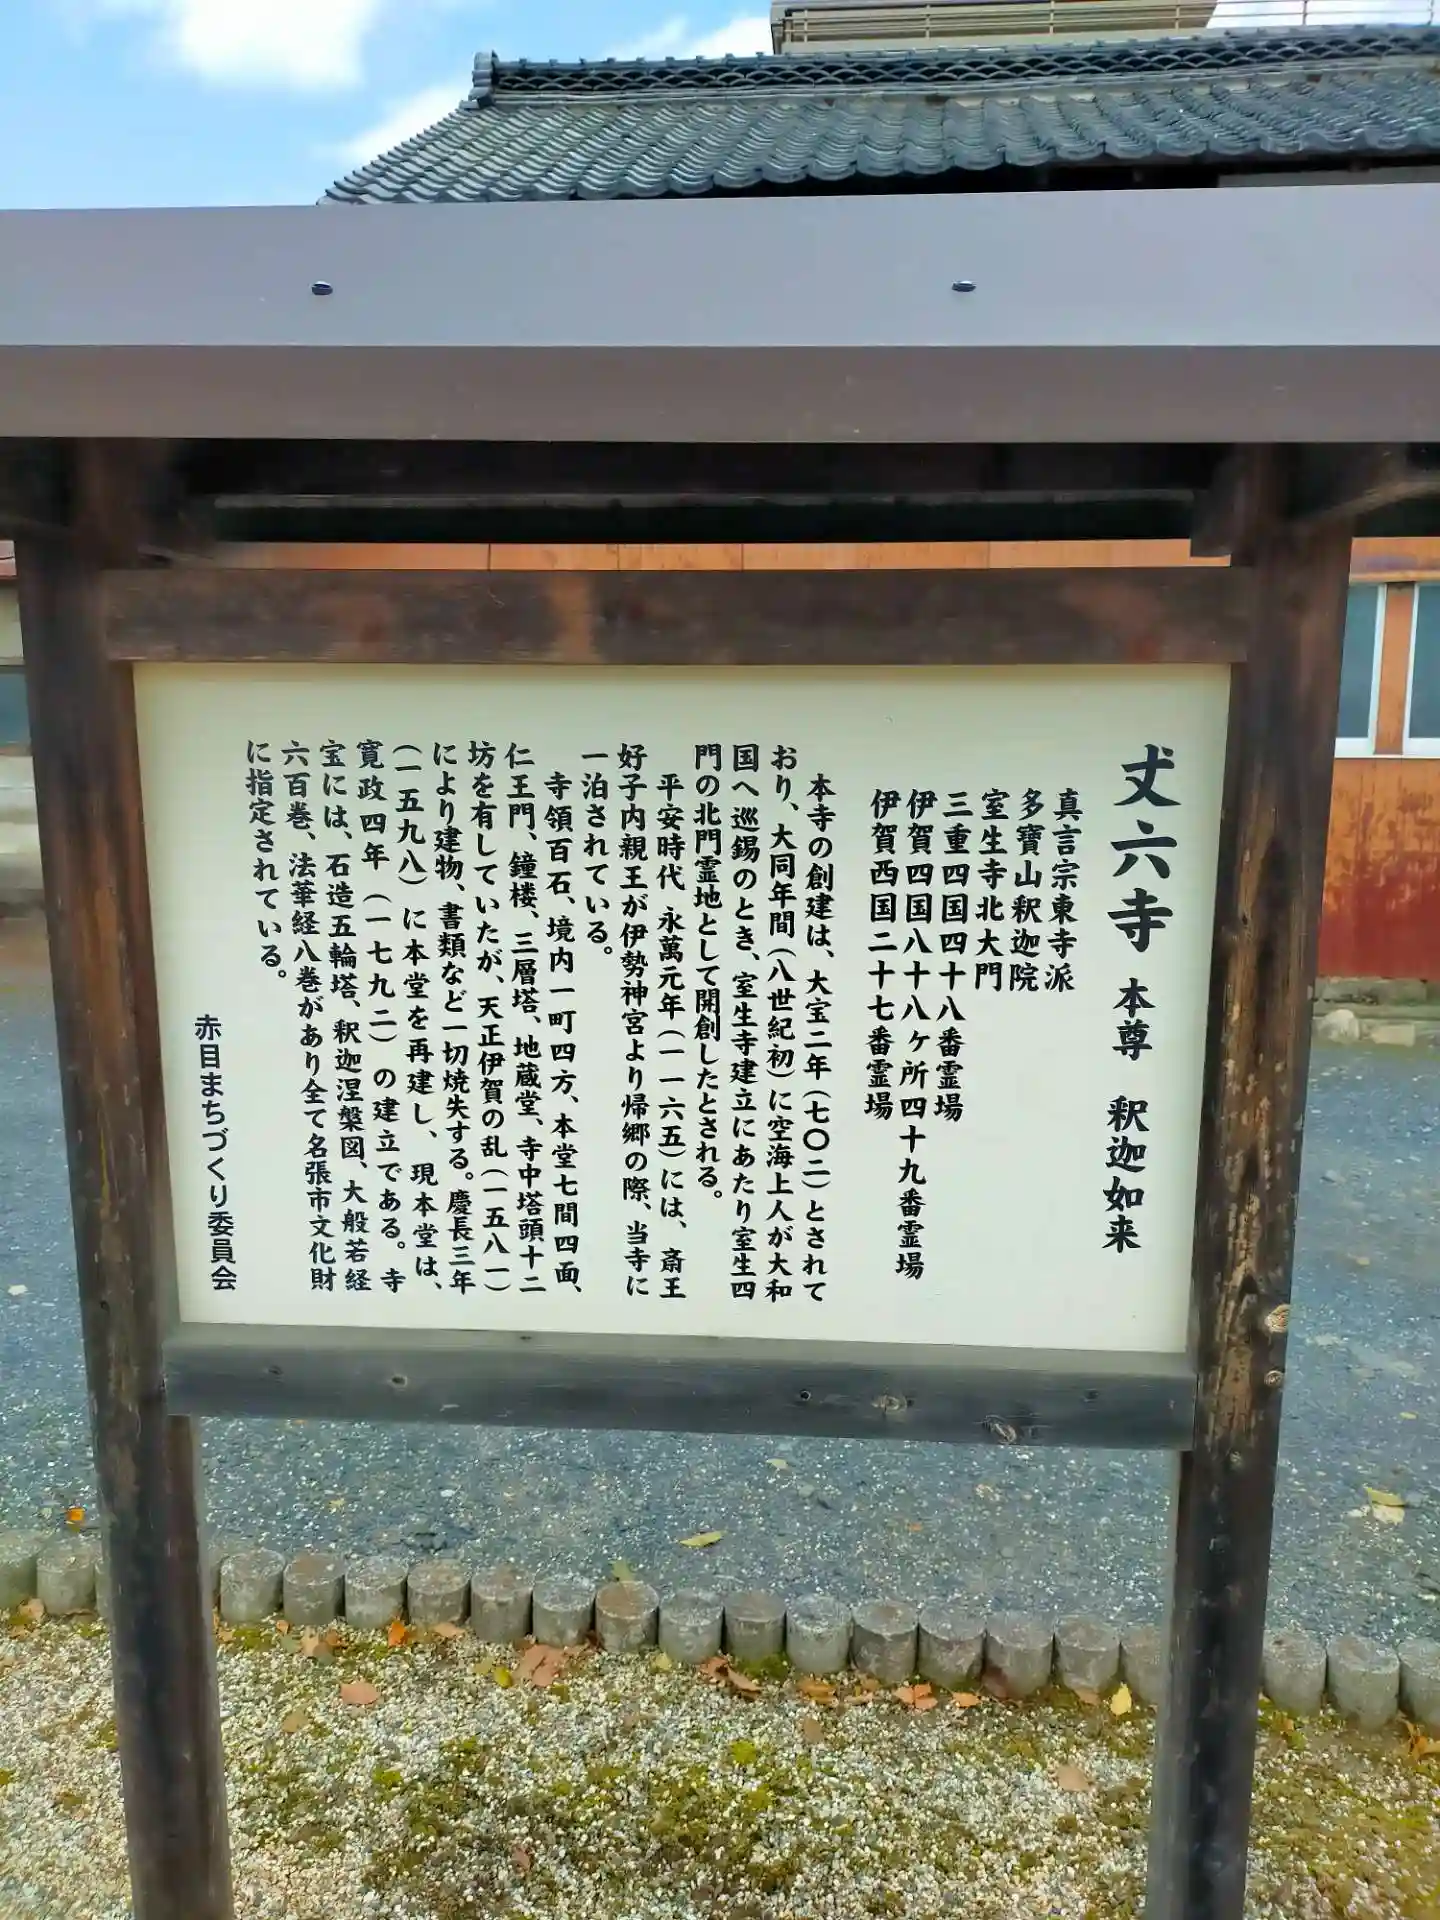 丈六寺 本尊 釈迦如来
真言宗東寺派
多寶山釈迦院
室生寺北大門
三重四国四十八番霊場
伊賀四国八十八ヶ所四十九番霊場
伊賀西国二十七番霊場
本寺の創建は、大宝二年(七〇二)とされて
おり、大同年間(八世紀初)に空海上人が大和
国へ巡錫のとき、室生寺建立にあたり室生四
門の北門霊地として開創したとされる。
平安時代 永萬元年(一一六五)には、斎王
好子内親王が伊勢神宮より帰郷の際、当寺に
一泊されている。
寺領百石、境内一町四方、本堂七間四面、
仁王門、鐘楼、三層塔、地蔵堂、寺中塔頭十二
坊を有していたが、天正伊賀の乱(一五八一)
により建物、書類など一切焼失する。慶長三年
(一五九八)に本堂を再建し、現本堂は、
寛政四年(一七九二)の建立である。寺
宝には、石造五輪塔、釈迦涅槃図、大般若経
六百巻、法華経八巻があり全て名張市文化財
に指定されている。
赤目まちづくり委員会